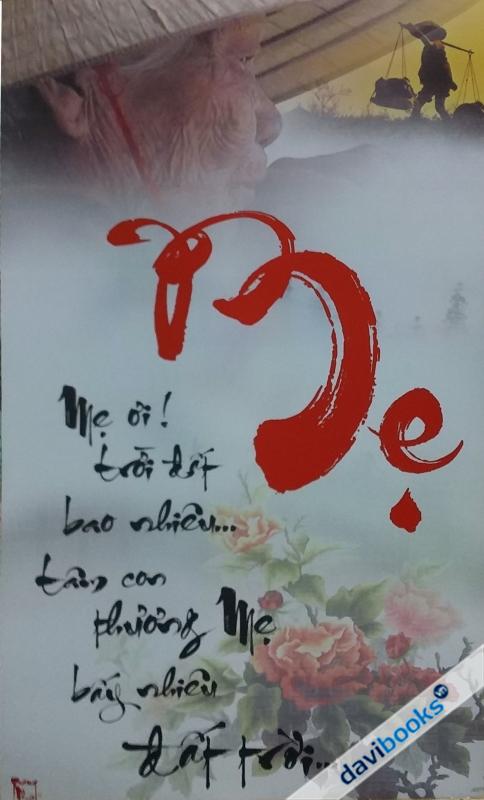 Mẹ
Mẹ ơi!
trời đất
bao nhiêu...
tâm con
thương Mẹ
bấy nhiêu
đất trời...
davibooks.vn